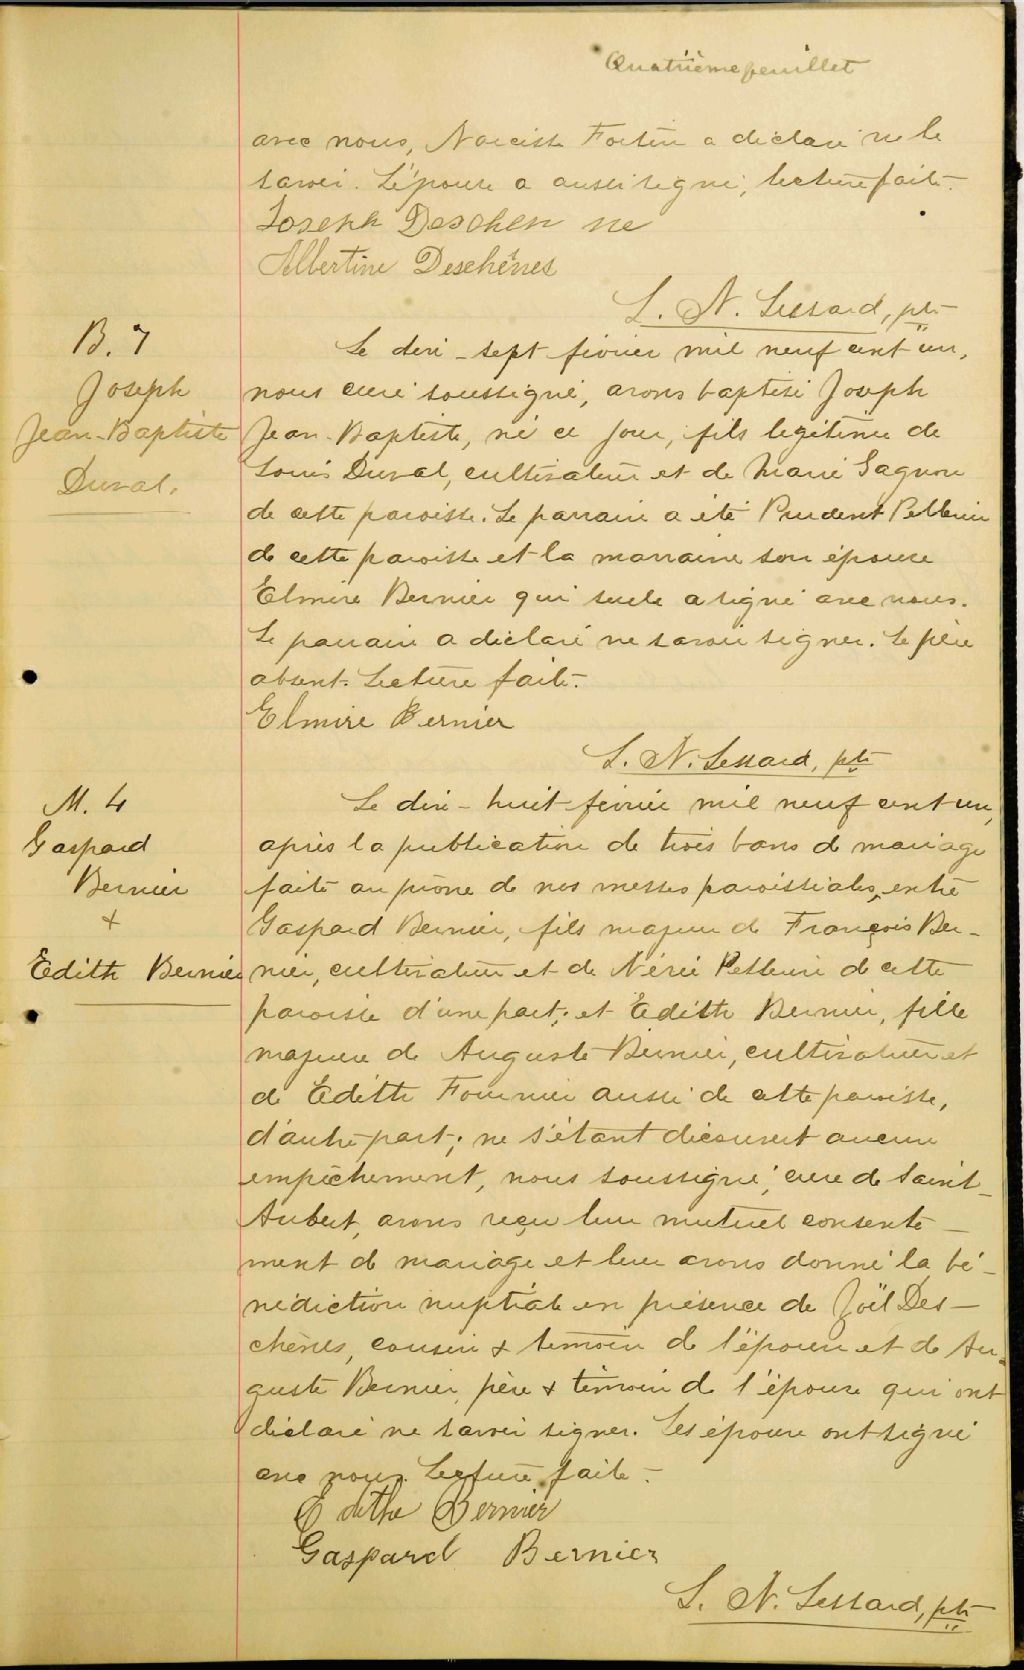 Quatrième feuillet
avec nous, Narcisse Fortin a déclaré ne le
savoir. L'épouse a aussi signé, lecture faite.
Joseph Deschen ne
Albertine Deschênes
L. N. Lessard, ptre
B. 7
Joseph
Jean-Baptiste
Duval.
Le dix-sept février mil neuf cent un,
nous curé soussigné, avons baptisé Joseph
Jean-Baptiste, né ce jour, fils légitime de
Louis Duval, cultivateur et de Marie Gagnon
de cette paroisse. Le parrain a été Prudent Pellerin
de cette paroisse et la marraine son épouse
Elmire Bernier qui seule a signé avec nous.
Le parrain a déclaré ne savoir signer. Le père
absent. Lecture faite.
Elmire Bernier
L. N. Lessard, ptre
M. 4
Gaspard
Bernier
+
Edith Bernier
Le dix-huit février mil neuf cent un,
après la publication de trois bans de mariage
faite au prône de nos messes paroissiales, entre
Gaspard Bernier, fils majeur de François Ber-
nier, cultivateur et de Nérée Pellerin de cette
paroisse d'une part; et Edith Bernier, fille
majeure de Auguste Bernier, cultivateur et
de Edith Fournier aussi de cette paroisse,
d'autre part; ne s'étant découvert aucun
empêchement, nous soussigné, curé de Saint-
Aubert, avons reçu leur mutuel consente-
ment de mariage et leur avons donné la bé-
nédiction nuptiale en présence de Joël Des-
chênes, cousin & témoin de l'époux et de Au-
guste Bernier, père & témoin de l'épouse qui ont
déclaré ne savoir signer. Les époux ont signé
avec nous. Lecture faite.
Edithe Bernier
Gaspard Bernier
L. N. Lessard, ptre